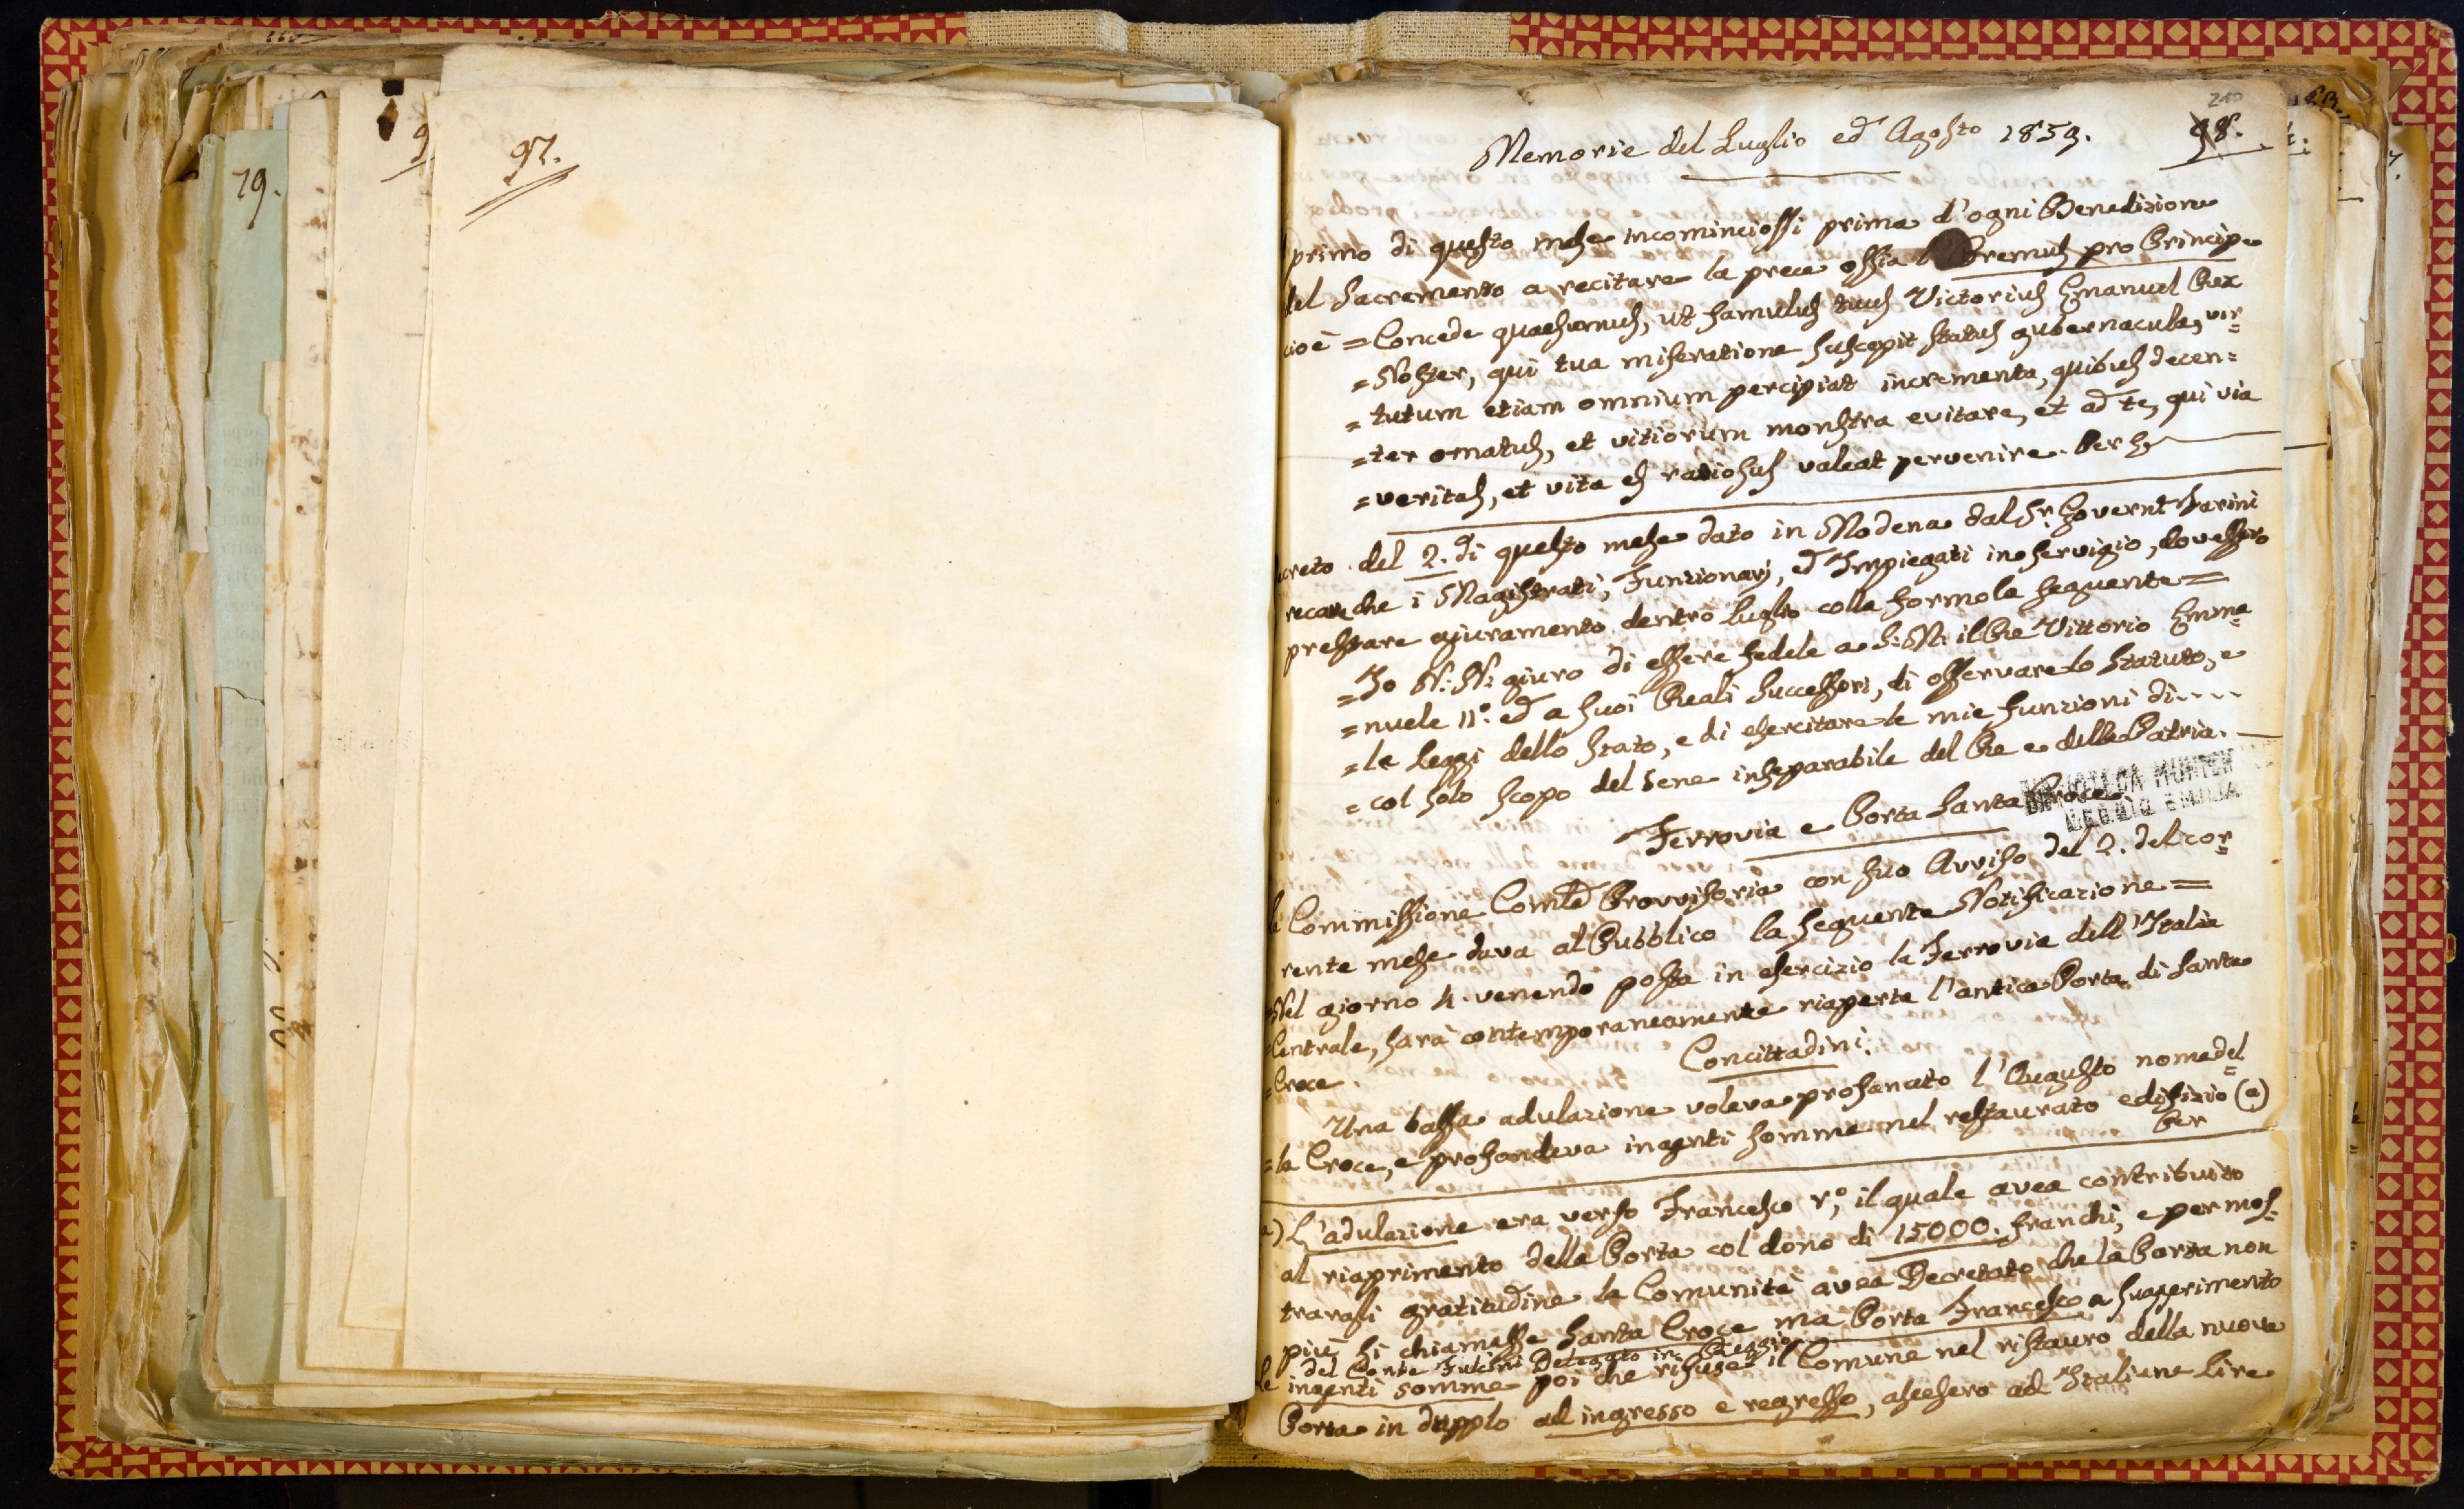 79.
9
97.
210
98.
Memorie del Luglio ed Agosto 1859.
primo di questo mese incominciossi prima d'ogni Benedizione
del Sacramento a recitare la prece ossia l'Oremus pro Principe
cioè = Concede quaesumus, ut famulus tuus Victorius Emanuel Rex
= Noster, qui tua miseratione suscepit status gubernacula, vir=
= tutum etiam omnium percipiat incrementa, quibus decen=
= ter ornatus, et vitiorum monstra evitare, et ad te, qui via
= veritas, et vita es ratiosus valeat pervenire. Per
ecreto del 2. di questo mese dato in Modena dal Sr. Governt. Farini
recava che i Magistrati, Funzionarj, ed Impiegati in servigio, dovessero
prestare giuramento dentro Luglio colla formola seguente =
= Io N: N: giuro di essere fedele a S: M: il Re Vittorio Emma=
= nuele II.º ed a suoi Reali Successori, di osservare lo Statuto, e
= le Leggi dello Stato, e di esercitare le mie funzioni di....
= col solo scopo del bene inseparabile del Re e della Patria.
BIBLIOTECA MUNICIP
REGGIO EMILIA
Ferrovia e Porta Santa Croce
la Commissione Comle Provvisoria con suo Avviso del 2. del cor=
rente mese dava al Pubblico la seguente Notificazione =
=Nel giorno 4. venendo posta in esercizio la Ferrovia dell'Italia
=Centrale, sarà contemporaneamente riaperta l'antica Porta di Santa
= Croce.
Concittadini.
Una bassa adulazione voleva profanato l'Augusto nome del=
= la Croce, e profondeva ingenti somme nel restaurato edifizio (a)
Per
a) L'adulazione era verso Francesco Vº, il quale avea contribuito
al riaprimento della Porta col dono di 15000. franchi, e per mos=
trargli gratitudine la Comunità avea Decretato che la Porta non
più si chiamasse Santa Croce ma Porta Francesco a suggerimento
del Conte Fulcini Delegato in Reggio
Le ingenti somme poi che rifuse il Comune nel ristauro della nuova
Porta in dupplo ad ingresso e regresso, ascesero ad Italiane Lire